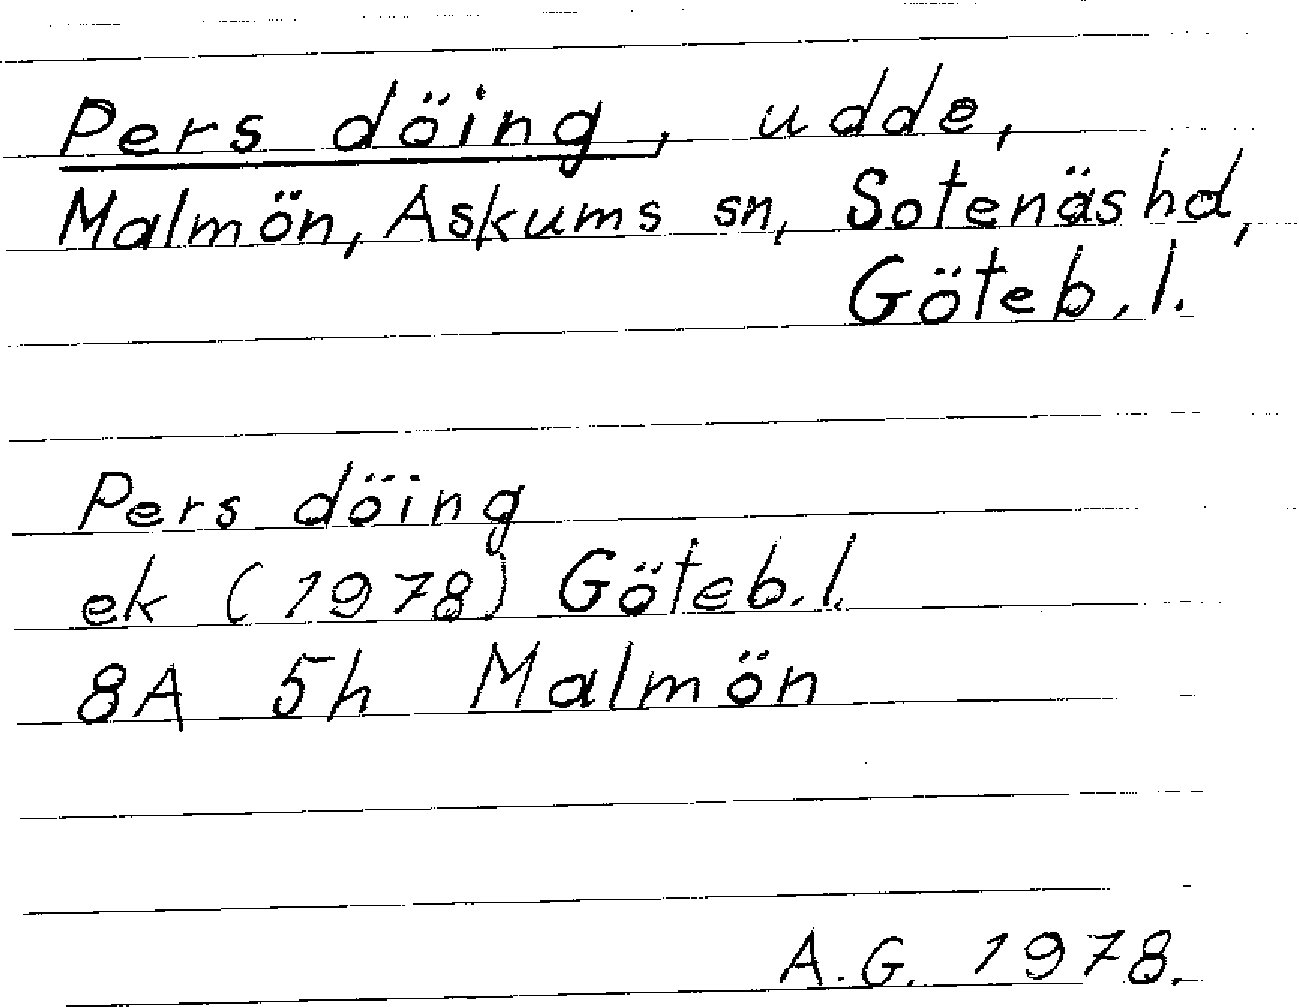 Pers döing, udde,
Malmön, Askums sn, Sotenäs hd,
Göteb. l.
Pers döing
ek (1978) Göteb. l.
8A 5h Malmön
A.G. 1978.